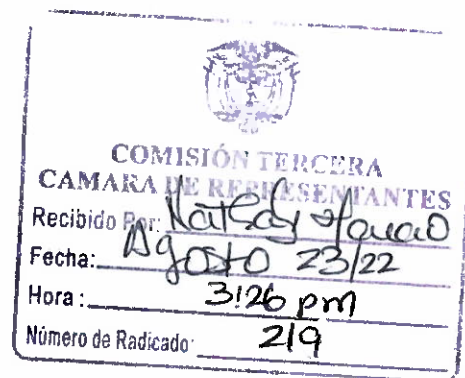 COMISIÓN TERCERA
CAMARA DE REPRESENTANTES
Recibido Por:
Fecha: Agosto 23/22
Hora: 3:26 pm
Número de Radicado: 219